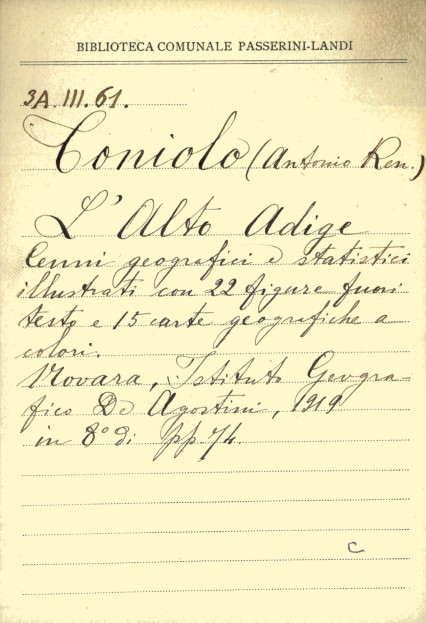 BIBLIOTECA COMUNALE PASSERINI-LANDI
3A.III.61.
Toniolo (Antonio Ren.)
L'Alto Adige
Cenni geografici e statistici
illustrati con 22 figure fuori
testo e 15 carte geografiche a
colori.
Novara, Istituto Geogra-
fico De Agostini, 1919
in 8° di pp 74.
C